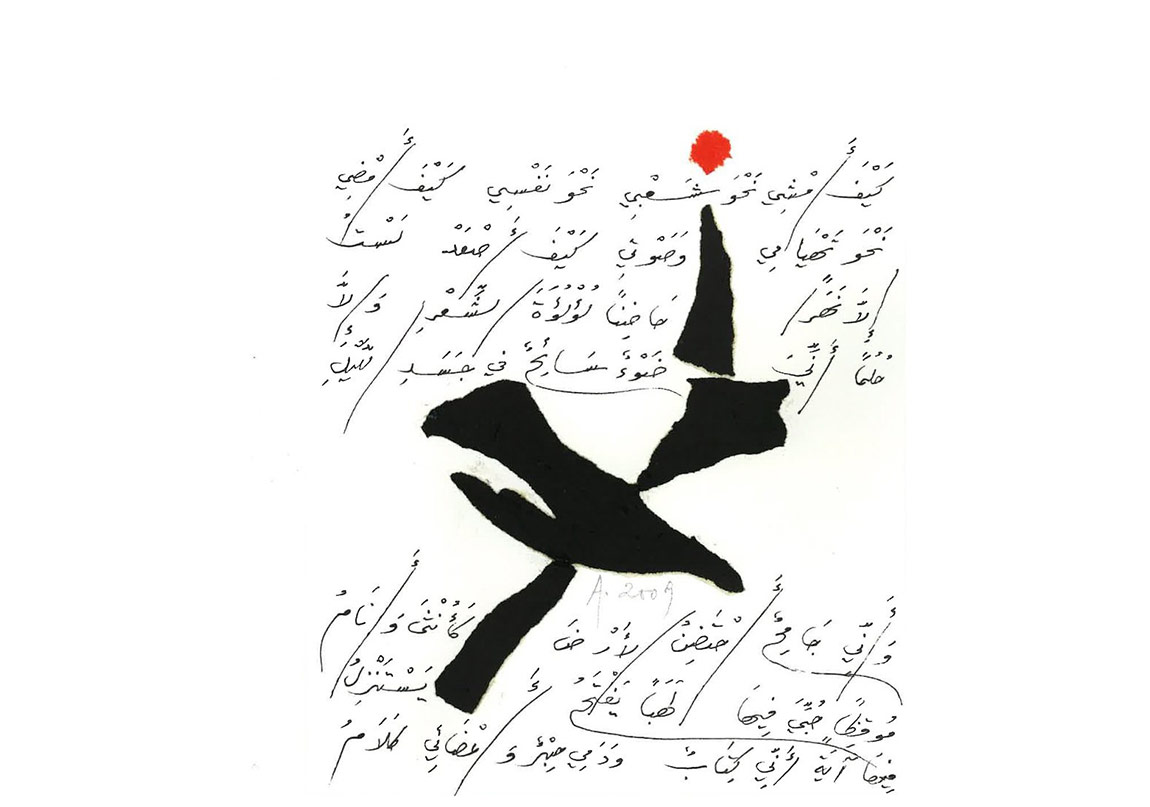 كَيْفَ أَمْشِي نَحْوَ شَعْبِي نَحْوَ نَفْسِي كَيْفَ أَمْضِي
نَحْوَ تَهْيَامِي وَصَوْتِي كَيْفَ أَصْعَدْ لَسْتُ
إِلَّا نَهَرًا حَاضِنًا لُؤْلُؤَةَ الشِّعْرِ وَإِلَّا
حُلُمًا أَنِّيَ ضَوْءٌ سَائِحٌ فِي جَسَدِ اللَّيْلِ
A. 2009
وَأَنِّي جَامِحٌ أَحْتَضِنُ الأَرْضَ كَأُنْثَى وَأَنَامُ
مُوقِظًا حُبِّيَ فِيهَا لَهَبًا يَفْتَحُ يَسْتَنْزِلُ
فِيهَا آيَةً أَنِّي كِتَابٌ وَدَمِي حِبْرٌ وَأَعْضَائِي كَلَامُ